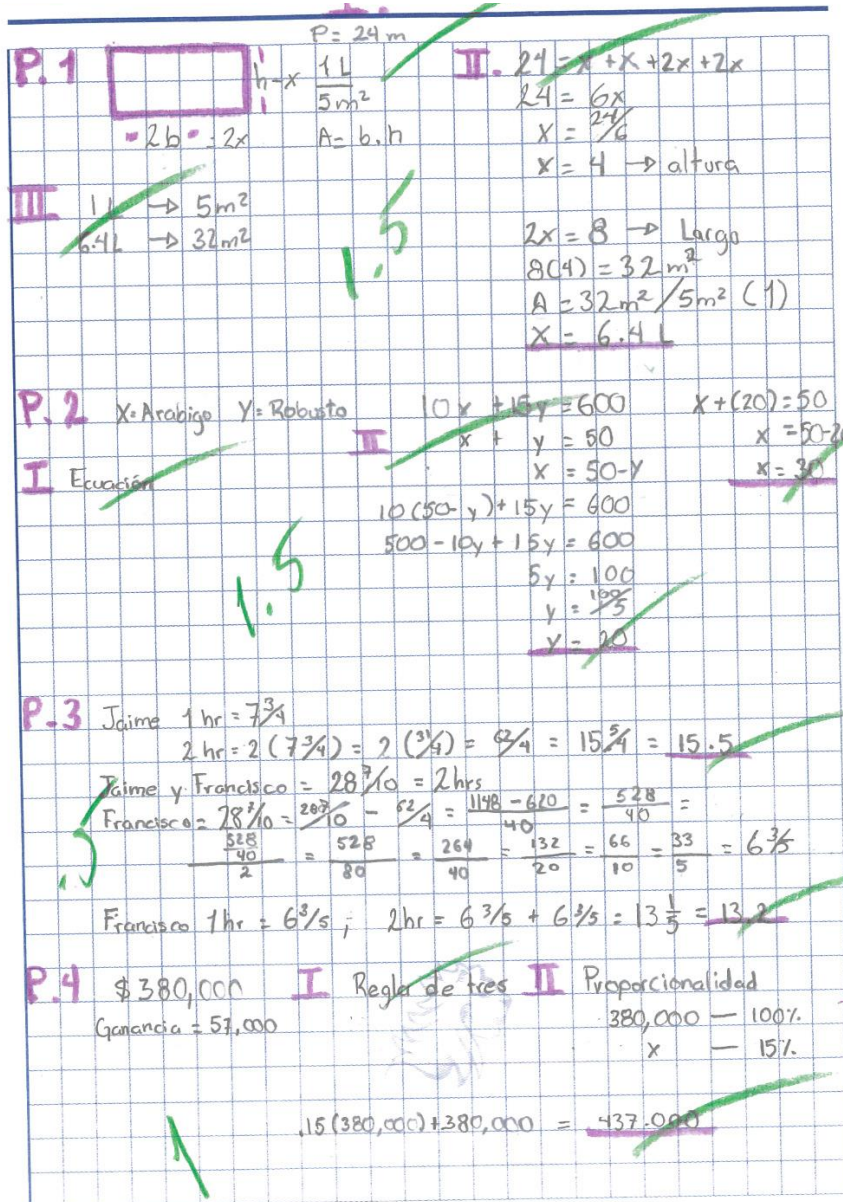 P = 24 m
P.1
h-x
1 L
5m²
2b = 2x
A = b.h
II. 24 = x + x + 2x + 2x
24 = 6x
x = 24/6
x = 4 → altura
III 1 L → 5m²
6.4L → 32m²
1.5
2x = 8 → Largo
8(4) = 32 m²
A = 32m²/5m² (1)
X = 6.4 L
P.2 X=Arabigo Y=Robusto
I Ecuación
II
10x + 15y = 600
x + y = 50
x = 50-y
10(50-y)+15y = 600
500 - 10y + 15y = 600
5y = 100
y = 100/5
y = 20
x+(20)=50
x = 50-20
x = 30
1.5
P.3 Jaime 1 hr = 7 3/4
2 hr = 2 (7 3/4) = 2 (31/4) = 62/4 = 15 5/4 = 15.5
Jaime y Francisco = 28 7/10 = 2hrs
Francisco = 28 7/10 = 287/10 - 62/4 = 1148 - 620 / 40 = 528/40 =
528/40 / 2 = 528/80 = 264/40 = 132/20 = 66/10 = 33/5 = 6 3/5
.5
Francisco 1hr = 6 3/5 ; 2hr = 6 3/5 + 6 3/5 = 13 1/5 = 13.2
P.4 $380,000
Ganancia = 57,000
I Regla de tres
II Proporcionalidad
380,000 — 100%
x — 15%
.15(380,000)+380,000 = 437.000
1